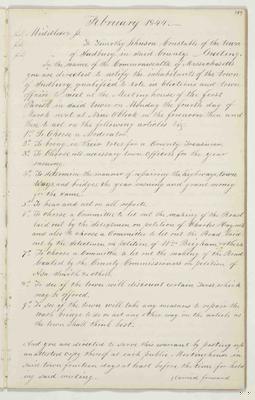 February 1844.
Middlesex ss.
To Timothy Johnson Constable of the town
of Sudbury in said County Greeting
In the name of the Commonwealth of Massachusetts
you are directed to notify the inhabitants of the town
of Sudbury qualified to vote in Elections and town
affairs to meet at the Meetinghouse of the first
Parish in said town on Monday the fourth day of
March next at nine O'Clock in the forenoon then and
there to act on the following articles viz:
1st To Choose a Moderator
2d To bring in their votes for a County Treasurer
3d To Choose all necessary town officers for the year
ensuing.
To determine the manner of repairing the highways, town
Ways and bridges the year ensuing and grant money
for the same.
5th To hear and act on all reports.
6th To choose a Committee to let out the making of the Road
laid out by the Selectmen on petition of Charles
and also to choose a Committee to let out the Road laid
out by the Selectmen on petition of Wm others
7th To choose a Committee to let out the making of the Road
located by the County Commissioners on petition of
Asa Smith & others
To see if the town will discount certain Taxes which
may be offered.
To see if the town will take any measures to repair the
bridge to do or act any other way on the article as
the town shall think best.
And you are directed to serve this warrant by posting up
an attested copy thereof at each public Meetinghouse in
said town fourteen days at least before the time for hold
ing said meeting.
Carried forward